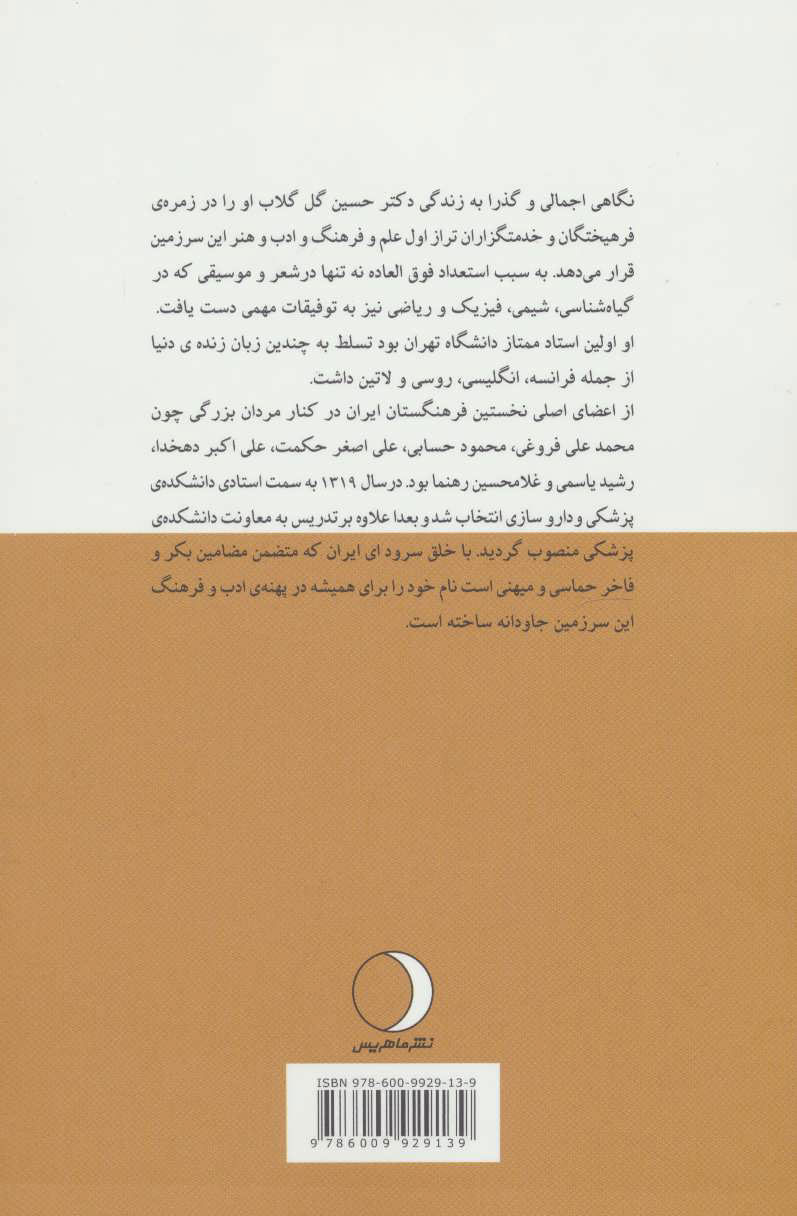 نگاهی اجمالی و گذرا به زندگی دکتر حسین گل گلاب او را در زمره‌ی
فرهیختگان و خدمتگزاران تراز اول علم و فرهنگ و ادب و هنر این سرزمین
قرار می‌دهد. به سبب استعداد فوق العاده نه تنها درشعر و موسیقی که در
گیاه‌شناسی، شیمی، فیزیک و ریاضی نیز به توفیقات مهمی دست یافت.
او اولین استاد ممتاز دانشگاه تهران بود تسلط به چندین زبان زنده ی دنیا
از جمله فرانسه، انگلیسی، روسی و لاتین داشت.
از اعضای اصلی نخستین فرهنگستان ایران در کنار مردان بزرگی چون
محمد علی فروغی، محمود حسابی، علی اصغر حکمت، علی اکبر دهخدا،
رشید یاسمی و غلامحسین رهنما بود. درسال ۱۳۱۹ به سمت استادی دانشکده‌ی
پزشکی و دارو سازی انتخاب شد و بعدا علاوه بر تدریس به معاونت دانشکده‌ی
پزشکی منصوب گردید. با خلق سرود ای ایران که متضمن مضامین بکر و
فاخر حماسی و میهنی است نام خود را برای همیشه در پهنه‌ی ادب و فرهنگ
این سرزمین جاودانه ساخته است.
نشر ماهریس
ISBN 978-600-9929-13-9
9 786009 929139